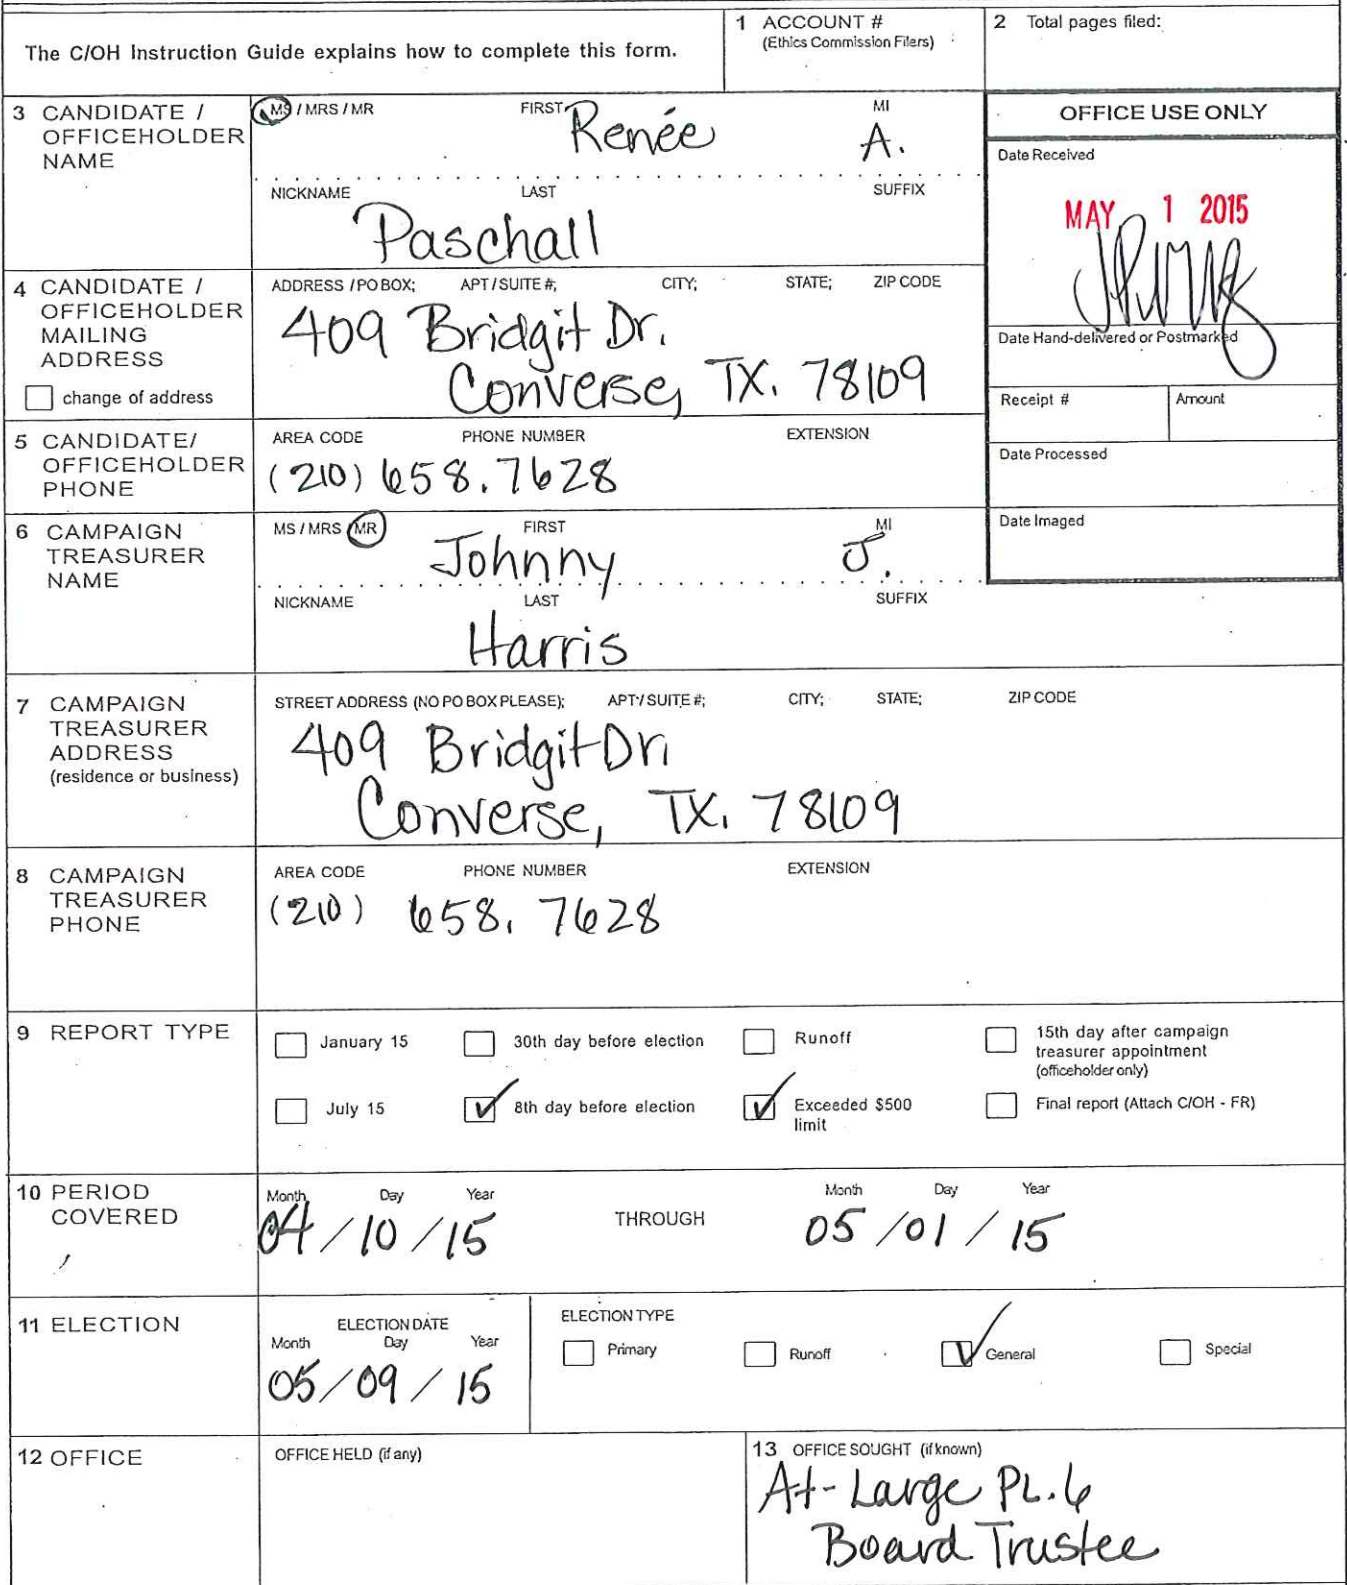 The C/OH Instruction Guide explains how to complete this form.
1 ACCOUNT #
(Ethics Commission Filers)
2 Total pages filed:
3 CANDIDATE /
OFFICEHOLDER
NAME
MS / MRS / MR FIRST MI
Renée A.
NICKNAME LAST SUFFIX
Paschall
OFFICE USE ONLY
Date Received
MAY 1 2015
Date Hand-delivered or Postmarked
Receipt # Amount
Date Processed
Date Imaged
4 CANDIDATE /
OFFICEHOLDER
MAILING
ADDRESS
change of address
ADDRESS / PO BOX; APT / SUITE #; CITY; STATE; ZIP CODE
409 Bridgit Dr.
Converse, TX. 78109
5 CANDIDATE/
OFFICEHOLDER
PHONE
AREA CODE PHONE NUMBER EXTENSION
(210) 658.7628
6 CAMPAIGN
TREASURER
NAME
MS / MRS / MR FIRST MI
Johnny J.
NICKNAME LAST SUFFIX
Harris
7 CAMPAIGN
TREASURER
ADDRESS
(residence or business)
STREET ADDRESS (NO PO BOX PLEASE); APT / SUITE #; CITY; STATE; ZIP CODE
409 Bridgit Dr.
Converse, TX. 78109
8 CAMPAIGN
TREASURER
PHONE
AREA CODE PHONE NUMBER EXTENSION
(210) 658. 7628
9 REPORT TYPE
January 15 30th day before election Runoff 15th day after campaign
treasurer appointment
(officeholder only)
July 15 8th day before election Exceeded $500
limit
Final report (Attach C/OH - FR)
10 PERIOD
COVERED
Month Day Year
04 / 10 / 15
THROUGH
Month Day Year
05 / 01 / 15
11 ELECTION
ELECTION DATE
Month Day Year
05 / 09 / 15
ELECTION TYPE
Primary Runoff General Special
12 OFFICE
OFFICE HELD (if any)
13 OFFICE SOUGHT (if known)
At-Large PL.6
Board Trustee